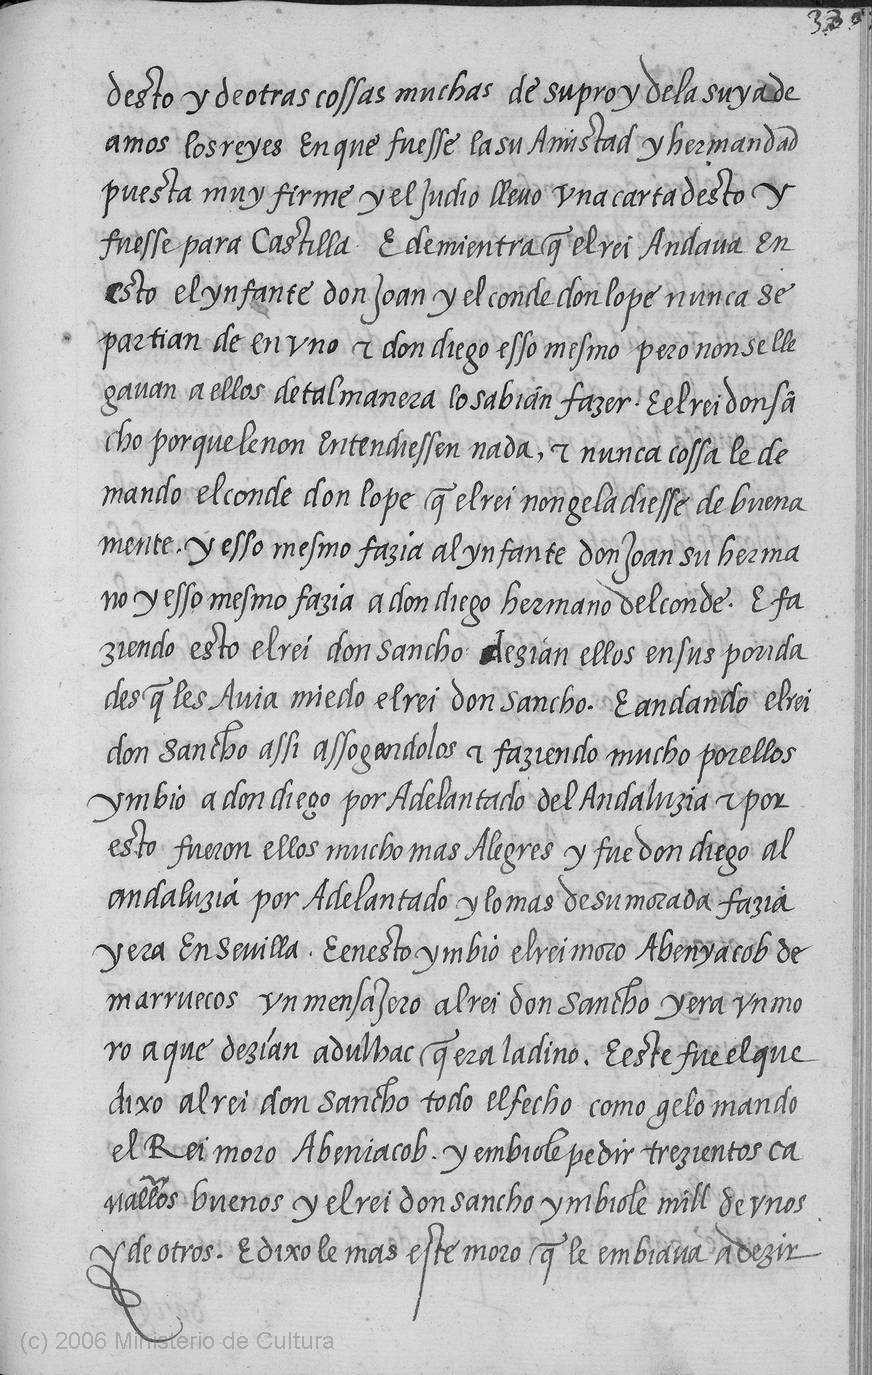 desto y de otras cossas muchas de su pro y dela suya de
amos los reyes En que fuesse la su Amistad y hermandad
puesta muy firme y el Judio lleuo vna carta desto y
fuesse para Castilla. E demientra q̃ el rei Andaua En
esto el ynfante don Joan y el conde don lope nunca se
partian de en vno τ don diego esso mesmo pero non se lle
gauan a ellos de tal manera lo sabian fazer. E el rei don sã
cho porque le non Entendiessen nada, τ nunca cossa le de
mando el conde don lope q̃ el rei non gela diesse de buena
mente. y esso mesmo fazia al ynfante don Joan su herma
no y esso mesmo fazia a don diego hermano del conde. E fa
ziendo esto el rei don sancho dezian ellos en sus porida
des q̃ les Auia miedo el rei don sancho. E andando el rei
don Sancho assi assogandolos τ faziendo mucho por ellos
ymbio a don diego por Adelantado del Andaluzia τ por
esto fueron ellos mucho mas Alegres y fue don diego al
andaluzia por Adelantado y lo mas de su morada fazia
y era En Sevilla. E en esto ymbio el rei moro Abenyacob de
marruecos vn mensajero al rei don Sancho y era vn mo
ro a que dezían adulhac q̃ era ladino. E este fue el que
dixo al rei don Sancho todo el fecho como gelo mando
el Rei moro Abeniacob. y embiole pedir trezientos ca
uallos buenos y el rei don sancho ymbiole mill de vnos
y de otros. E dixo le mas este moro q̃ le embiaua a dezir
(c) 2006 Ministerio de Cultura